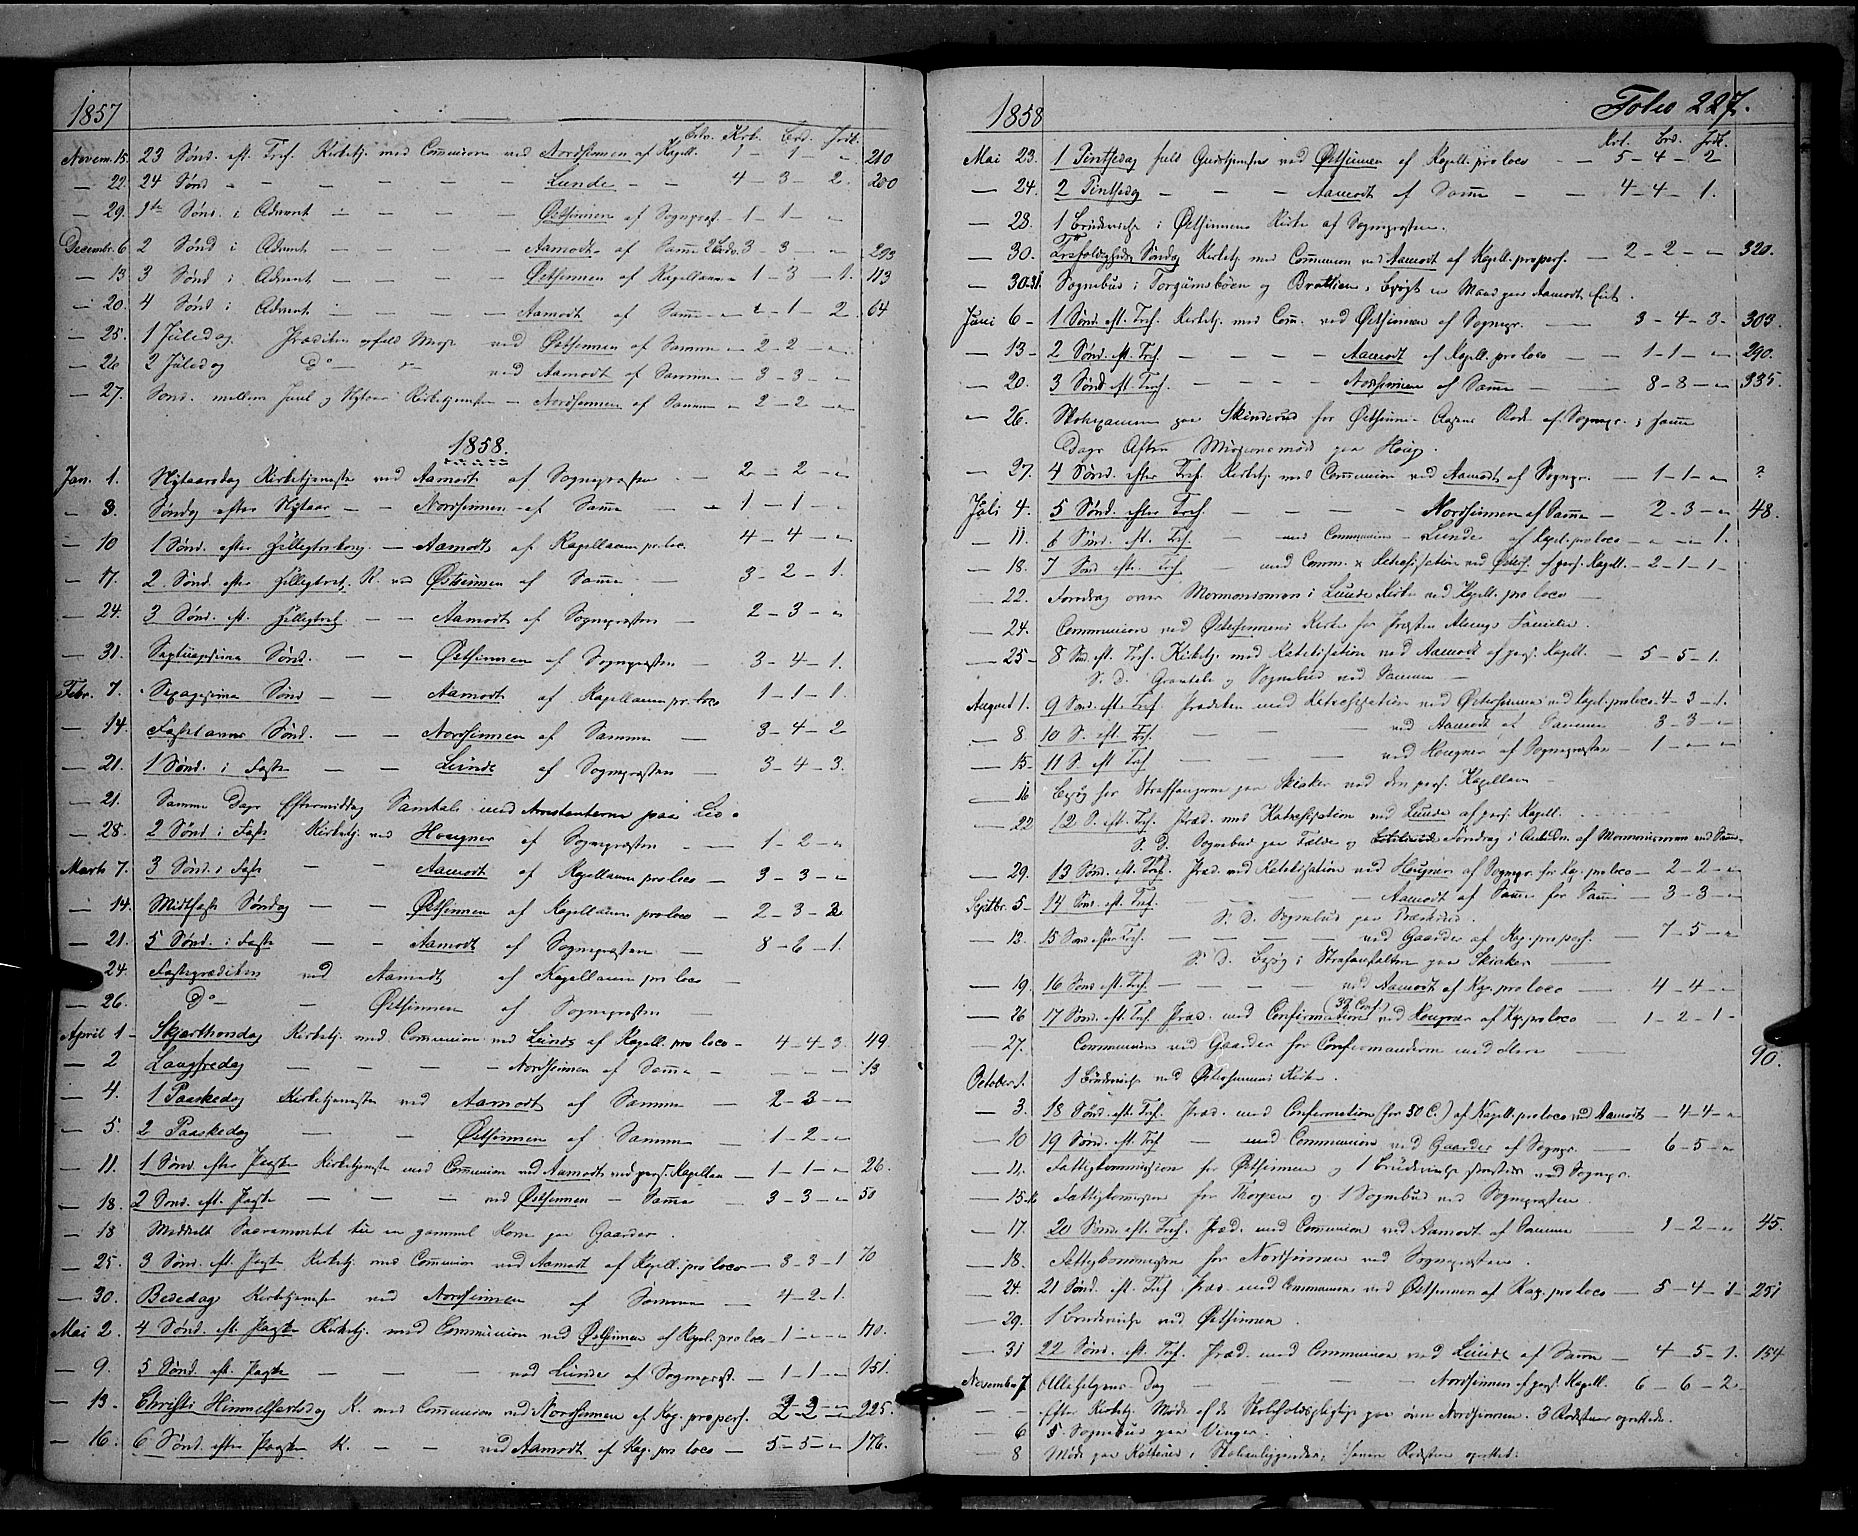 1857
Bdv. Krb. Brd. Jrdt.
Novem. 15. 23 Sønd. eft. Tref. Kirketj. med Communion ved Nordsinnen af Kapell. 1 - 1 - " 210
— 22. 24 Sønd - - - - - Lunde - - 4 - 3 - 2. 200
— 29. 1ste Sønd. i Advent - - - - Østsinnen af Sognepræst. - 1 - 1 - "
Decembr. 6 2 Sønd i Advent - - - Aamodt af Samme 3 - 3 - " 293
— 13 3 Sønd i Advent - - - Østsinnen af Kapellanen - 1 - 3 - 1. 113
— 20. 4 Sønd i Advent - - - - Aamodt af Samme - 1 - 2 64
— 25. 1 Juledag. Prædiken ved Østsinnen af Samme - 2 - 2 - "
— 26 2 Juledag do — ved Aamodt af Samme - 3 - 3 - "
— 27. Sønd. mellem Juul og Nytaar Kirketjenesten - Nordsinnen af Samme - 2 - 2 - "
1858.
Jan. 1. Nytaarsdag Kirketjeneste ved Aamodt af Sognepræsten - 2 - 2 - "
— 3. Søndag efter Nytaar - - Nordsinnen af Samme - 1 - 1 - "
— 10 1 Sønd. efter Helligtrekong. - Aamodt af Kapellanen pr. loc. 4 - 4 - "
— 17. 2. Sønd. efter Helligtrek. K. ved Østsinnen af Samme 3 - 2 - 1.
— 24. 3 Sønd. eft. Helligtrek. - - Aamodt af Sognepræsten - 2 - 3 - "
— 31. Septuagesima Sønd. - - Østsinnen af Sognepræsten - 3 - 4 - 1.
Febr. 7. Sexagesima Sønd - - Aamodt af Kapellanen pr. loco 1 - 1 - 1.
— 14. Fastelavns Sønd. - - Nordsinnen af Samme — 3 - 4 - 2
— 21. 1 Sønd. i Faste - - Lunde af Sognepræsten — 3 - 4 - 3.
— 21. Samme Dags Eftermiddag Samtale med Arrestanterne paa Lie.
— 28. 2 Sønd i Faste Kirketj. ved Hougner af Sognepræsten — 1 - 2 - "
Marts 7. 3 Sønd. i Faste - Aamodt af Kapellanen pro loco - 3 - 3 - "
— 14. Midfaste Søndag - - Østsinnen af Kapellanen pro loco - 2 - 3 - 2
— 21. 5 Sønd. i Faste - - Aamodt af Sognepræsten — 8 - 6 - 1.
— 24. Fasteprædiken ved Aamodt af Kapellanen pro loco —
— 26. Do - Østsinnen af Sognepræsten —
April 1 - Skjærthorsdag Kirketj. med Communion ved Lunde af Kapell. pro loco - 4 - 4 - 3. 49.
— 2 Langfredag - - - - Nordsinnen af Samme - - - - 13
— 4. 1 Paaskedag Kirketjenesten ved Aamodt af Samme — 2 - 3 - "
— 5. 2 Paaskedag - - Østsinnen af Samme — 1 - 2 - "
— 11. 1 Sønd. efter Paaske Kirketjeneste med Communion ved Aamodt ved pers. Kapellan - 1 - 1 - " 26.
— 18. 2 Sønd. eft. Paaske - - - ved Østsinnen - Samme 3 - 3 - " 50
— 18 Meddelt Sacramentet til en gammel Kone paa Gaarder.
— 25. 3 Sønd. eft. Paaske Kirketj. med Communion ved Aamodt af Kapell. pro loco - 3 - 3 - 1 70
— 30. Bededag Kirketjeneste ved Nordsinnen af Samme — 4 - 2 - 1.
Mai 2. 4 Sønd. eft. Paaske Kirketj. med Communion ved Østsinnen af Kapel. pro loco - 1 - " - " 170.
— 9. 5 Sønd. eft. Paaske - - ved Lunde af Sognepræst. - 1 - 1 - " 151.
— 13. Christi Himmelfartsdag K. med Communion ved Nordsinnen af Kap. pro pers. 2 - 2 - " 225.
— 16. 6 Sønd. efter Paaske K. - - ved Aamodt af Kap. pro loco — 5 - 5 - " 176.
1858
Folio 227.
Krt. Brd. Jrdt.
Mai 23. 1 Pintsedag fuld Gudstjeneste ved Østsinnen af Kapell. pro loco - - 5 - 4 - 2
— 24. 2 Pintsedag - - - Aamodt af Samme - - 4 - 4 - 1.
— 28. 1 Brudevielse i Østsinnens Kirke af Sognepræsten.
— 30. Trefoldigheds Søndag Kirketj. med Communion ved Aamodt af Kapell. pro pers. - 2 - 2 - " 320.
— 30-31 Sognebud i Torgunsbøen og Bratlien, besøgt en Mand paa Aamodt Eie.
Juni 6 - 1 Sønd. eft. Tref. Kirketj. med Com. ved Østsinnen af Sognepr. — 3 - 4 - 3 - 303.
— 13 - 2 Sønd. eft. Tref. - - - - Aamodt af Kapell. pro loco - - 1 - 1 - " 290.
— 20. 3 Sønd. eft. Tref. - - - - Nordsinnen af Samme - - 8 - 8 - " 335.
— 26. Skoleexamen paa Skinderud for Østsinne Rode af Sognepr., samme
Dags Aften Missionsmøde paa Houg.
— 27. 4 Sønd. efter Tref. Kirketj. med Communion ved Aamodt af Sognepr. - 1 - 1 - " ?
Juli 4. 5 Sønd. efter Tref - - - - Nordsinnen af Samme - 2 - 3 - " 48.
— 11. 6 Sønd. eft. Tref. - - med Communion - Lunde af Kapel. pro loco - " - " - 1.
— 18. 7 Sønd eft. Tref - med Comm. & Katechisation ved Østs. af pers. Kapell. - 2 - 1 - 1 -
— 22. Foredrag over Mormonismen i Lunde Kirke ved Kapell. pro loco —
— 24. Communion ved Østsinnens Kirke for Præsten Familie.
— 25 - 8 Sønd. eft. Tref. Kirketj. med Katekisation ved Aamodt af pers. Kapell. - 5 - 5 - 1.
S. D. og Sognebud ved Samme —
August 1. 9 Sønd. eft. Tref. Prædiken med Katechisation ved Østsinnen ved Kapel. pro loco 4 - 3 - 1.
— 8 10 S. eft. Tref. - - - ved Aamodt af Samme 3 - 3 - "
— 15 - 11 S. eft. Tref - - - ved Hougner af Sognepræsten - 1 - " - "
— 16 Besøg hos Straffangerne paa Skiaker ved den pers. Kapellan
— 22 12 S. eft. Tref. Præd. med Katechisation ved Lunde af pers. Kapell.
S. D. Sognebud paa Fælde og Foredrag i Anledn. af Mormonismen ved Samme
— 29. 13 Sønd. eft. Tref. Præd. med Katekisation ved Hougner af Sognepr. for Kap. pro loco - 2 - 2 - "
Septbr. 5 - 14 Sønd. eft. Tref. - - - Aamodt af Samme for Samme - 3 - 3 - "
S. D. Sognebud paa
— 12. 15 Sønd efter Tref. - - - ved Gaarder af Kap. pro pers. - 7 - 5 - "
S. D. Besøg i Strafanstalten paa Skiaker —
— 19. 16 Sønd eft. Tref. - - - ved Aamodt af Kap. pro loco — 4 - 4 - "
— 26 17 Sønd. eft. Tref Præd. med Confirmation (39 Conf.) ved Hougner af Kap. pro loco — 1 - 2 - 1 -
27. Communion ved Gaarder for Confirmanderne med Flere — 90.
October 1. 1 Brudevielse ved Østsinnens Kirke.
— 3. 18 Sønd. eft. Tref. Præd. med Confirmation (for 50 C.) af Kapell. pro loco ved Aamodt - 4 - 4 - "
— 10 19 Sønd. eft. Tref - med Communion ved Gaarder af Sognepr. 6 - 5 - "
— 11. Fattigkommission for Østsinnen og 1 Brudevielse ved Sognepr.
— 15-16 Fattigkommission for Thorpen og 1 Sognebud ved Sognepræsten.
— 17. 20 Sønd. eft. Tref. Præd. med Communion ved Aamodt af Samme — 1 - 2 - " 45.
— 18. Fattigkommission for Nordsinnen ved Sognepræsten.
— 24. 21 Sønd. eft. Tref Præd. med Communion ved Østsinnen af Kap. pro loco - 5 - 4 - 1 - 251
— 29. 1 Brudevielse ved Østsinnen.
— 31 22 Sønd. eft. Tref. Præd. med Communion ved Lunde af Samme - 4 - 5 - 1. 154
November 7. Allehelgens Dag - - - - Nordsinnen af pers. Kapell. 6 - 6 - 2
- - efter Kirketj. Møde af de Skoleholdspligtige paa øvre Nordsinnen. 3 Rodestuer oprettede.
— 6 5. Sognebud paa Vinger.
8 Møde paa Kolterud i Skoleanliggender, Rodestue oprettet.